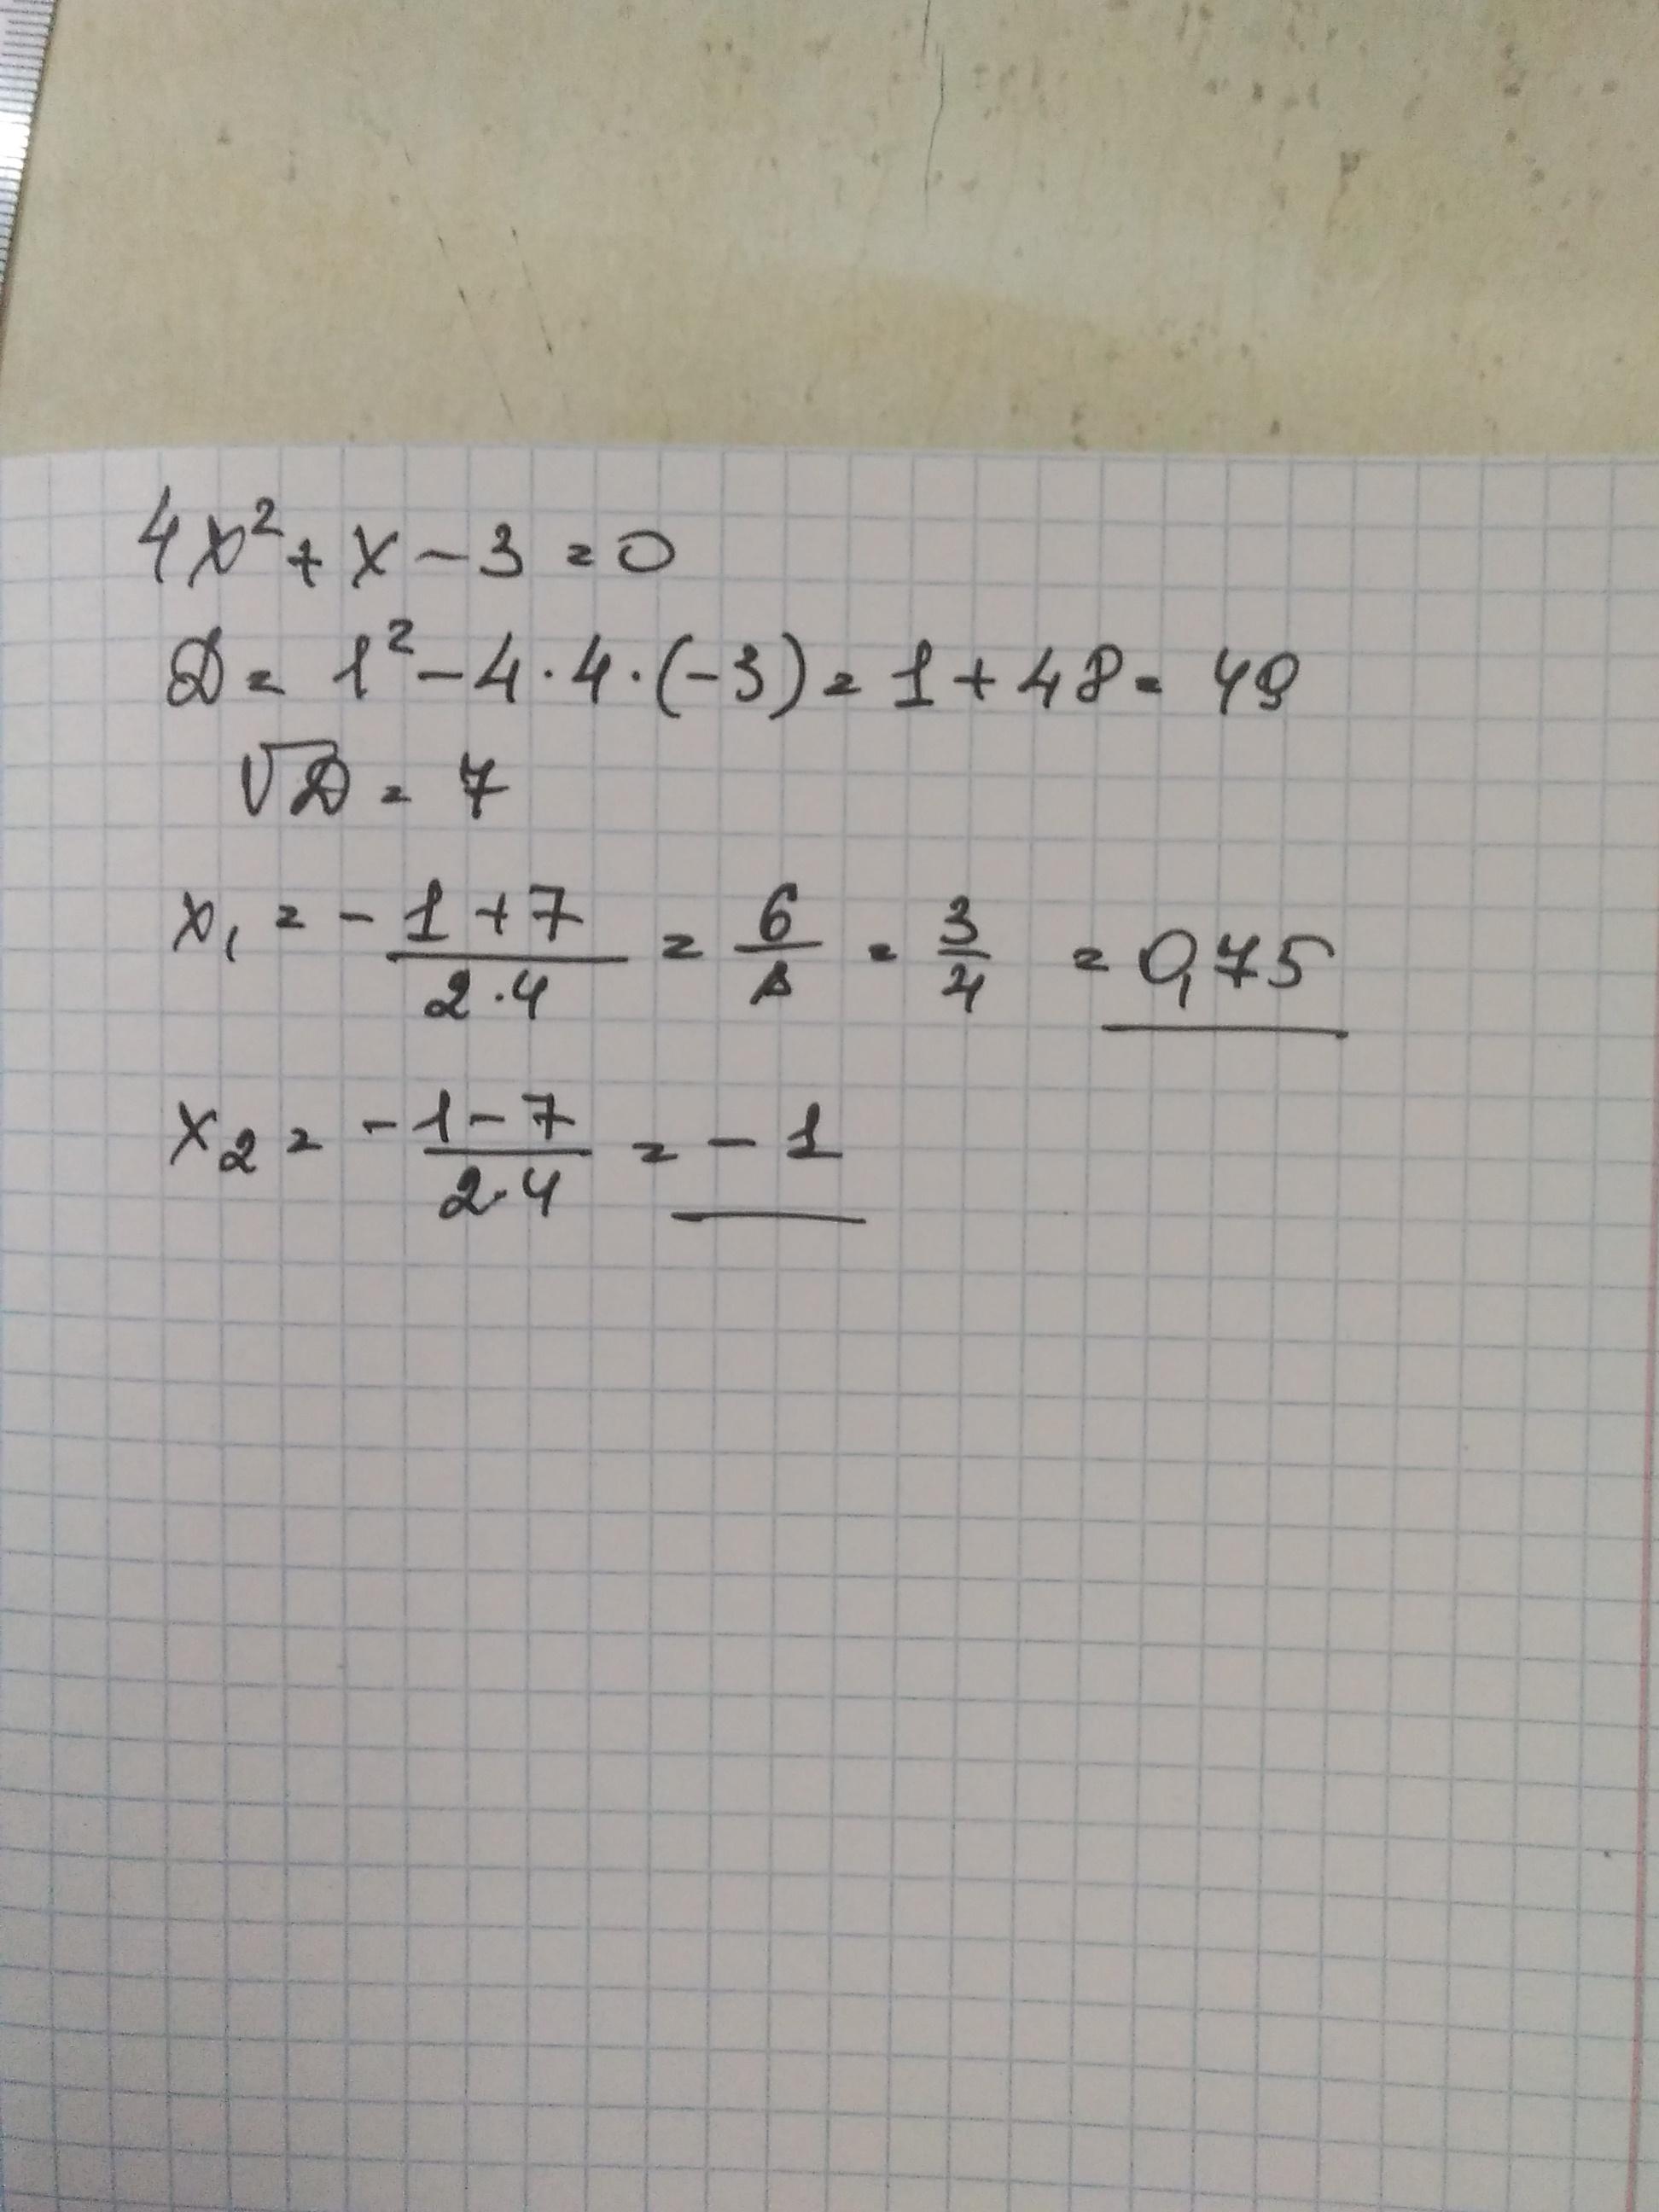 4x² + x - 3 = 0
D = 1² - 4 · 4 · (-3) = 1 + 48 = 49
√D = 7
x₁ = -1 + 7 / 2 · 4 = 6/8 = 3/4 = 0,75
x₂ = -1 - 7 / 2 · 4 = -1